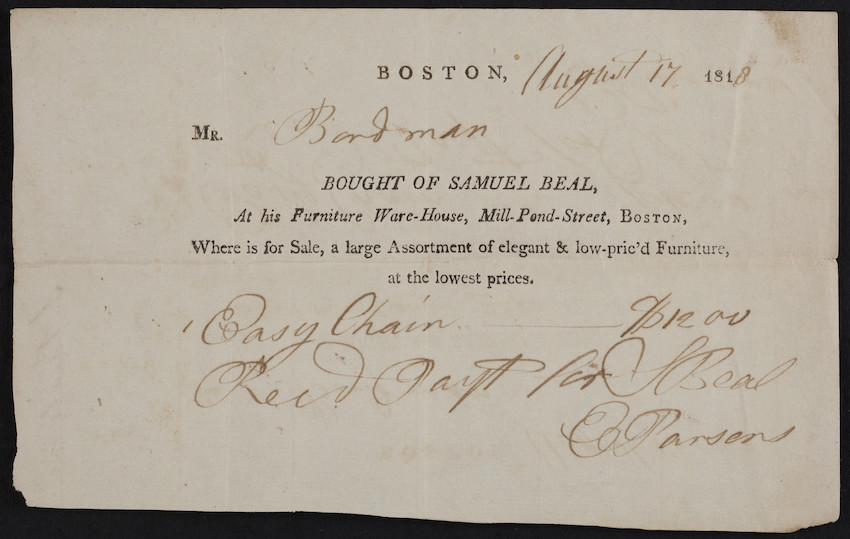 BOSTON, August 17. 1818
MR. Bordman
BOUGHT OF SAMUEL BEAL,
At his Furniture Ware-House, Mill-Pond-Street, BOSTON,
Where is for Sale, a large Assortment of elegant & low-pric'd Furniture,
at the lowest prices.
1 Easy Chair $12 00
Recd Payt for S Beal
E Parsons